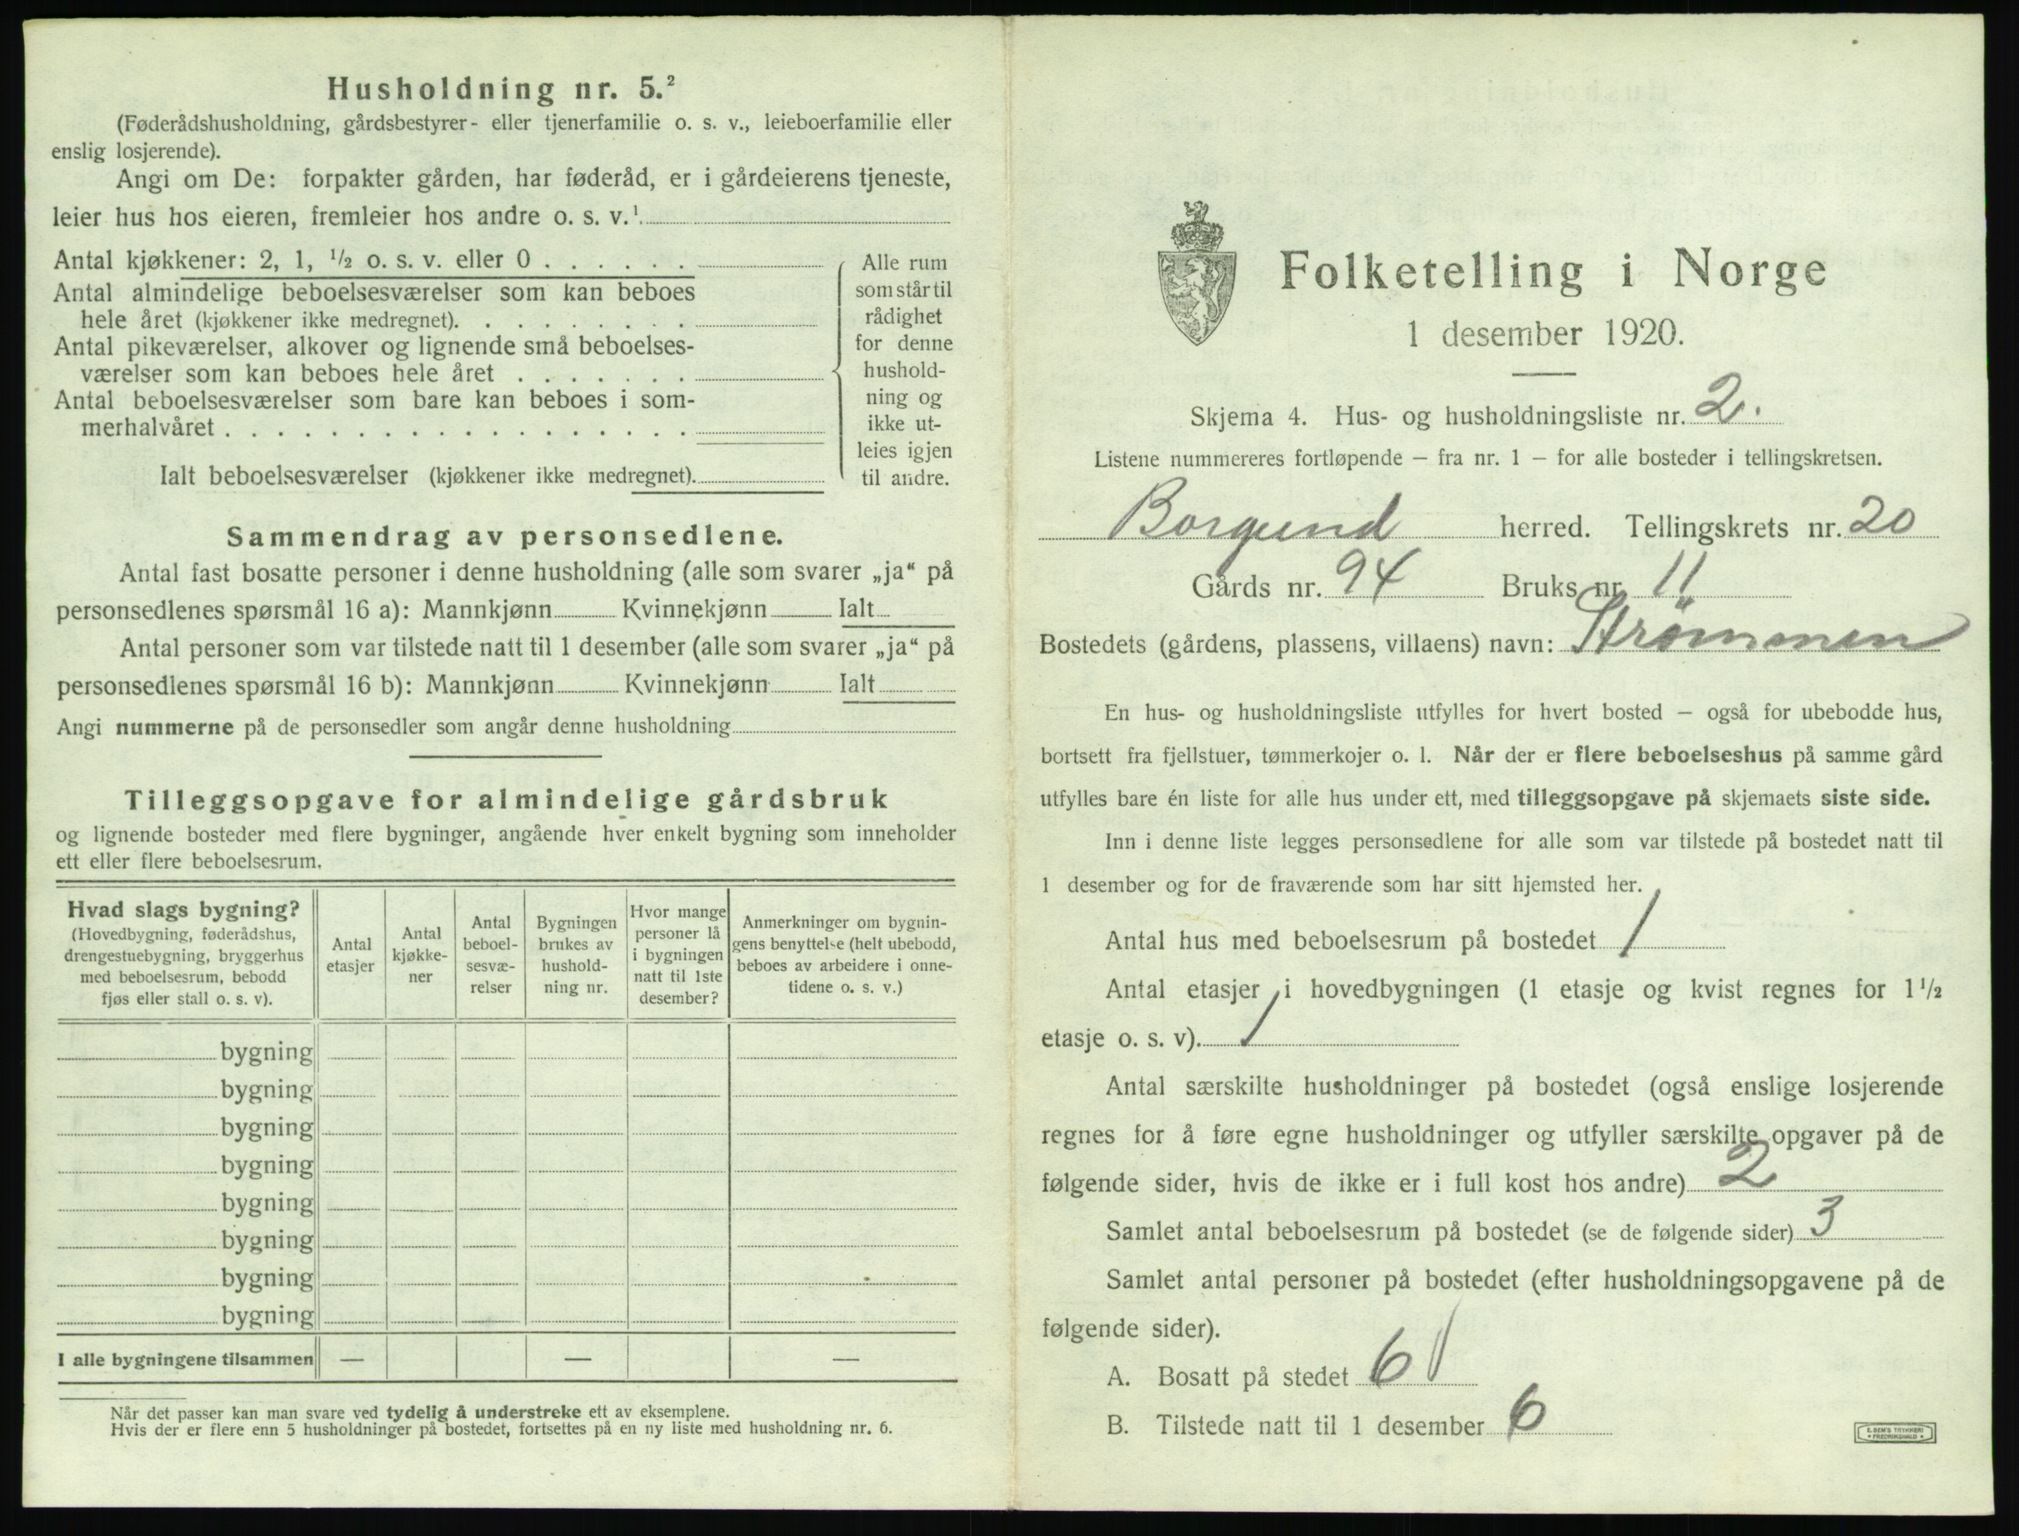 Husholdning nr. 5.²
(Føderådshusholdning, gårdsbestyrer- eller tjenerfamilie o. s. v., leieboerfamilie eller
enslig losjerende).
Angi om De: forpakter gården, har føderåd, er i gårdeierens tjeneste,
leier hus hos eieren, fremleier hos andre o. s. v.¹
Antal kjøkkener: 2, 1, ½ o. s. v. eller 0
Antal almindelige beboelsesværelser som kan beboes
hele året (kjøkkener ikke medregnet).
Antal pikeværelser, alkover og lignende små beboelses-
værelser som kan beboes hele året
Antal beboelsesværelser som bare kan beboes i som-
merhalvåret
Ialt beboelsesværelser (kjøkkener ikke medregnet).
Alle rum
som står til
rådighet
for denne
hushold-
ning og
ikke ut-
leies igjen
til andre.
Sammendrag av personsedlene.
Antal fast bosatte personer i denne husholdning (alle som svarer „ja“ på
personsedlenes spørsmål 16 a): Mannkjønn Kvinnekjønn Ialt
Antal personer som var tilstede natt til 1 desember (alle som svarer „ja“ på
personsedlenes spørsmål 16 b): Mannkjønn Kvinnekjønn Ialt
Angi nummerne på de personsedler som angår denne husholdning
Tilleggsopgave for almindelige gårdsbruk
og lignende bosteder med flere bygninger, angående hver enkelt bygning som inneholder
ett eller flere beboelsesrum.
Hvad slags bygning?
(Hovedbygning, føderådshus,
drengestuebygning, bryggerhus
med beboelsesrum, bebodd
fjøs eller stall o. s. v).
Antal
etasjer
Antal
kjøkke-
ner
Antal
beboel-
sesvæ-
relser
Bygningen
brukes av
hushold-
ning nr.
Hvor mange
personer lå
i bygningen
natt til 1ste
desember?
Anmerkninger om bygnin-
gens benyttelse (helt ubebodd,
beboes av arbeidere i onne-
tidene o. s. v.)
bygning
bygning
bygning
bygning
bygning
bygning
bygning
bygning
I alle bygningene tilsammen — — —
Når det passer kan man svare ved tydelig å understreke ett av eksemplene.
Hvis der er flere enn 5 husholdninger på bostedet, fortsettes på en ny liste med husholdning nr. 6.
Folketelling i Norge
1 desember 1920.
Skjema 4. Hus- og husholdningsliste nr. 2.
Listene nummereres fortløpende — fra nr. 1 — for alle bosteder i tellingskretsen.
Borgund herred. Tellingskrets nr. 20
Gårds nr. 94 Bruks nr. 11
Bostedets (gårdens, plassens, villaens) navn: Strømmen
En hus- og husholdningsliste utfylles for hvert bosted — også for ubebodde hus,
bortsett fra fjellstuer, tømmerkojer o. l. Når der er flere beboelseshus på samme gård
utfylles bare én liste for alle hus under ett, med tilleggsopgave på skjemaets siste side.
Inn i denne liste legges personsedlene for alle som var tilstede på bostedet natt til
1 desember og for de fraværende som har sitt hjemsted her.
Antal hus med beboelsesrum på bostedet 1
Antal etasjer i hovedbygningen (1 etasje og kvist regnes for 1½
etasje o. s. v). 1
Antal særskilte husholdninger på bostedet (også enslige losjerende
regnes for å føre egne husholdninger og utfyller særskilte opgaver på de
følgende sider, hvis de ikke er i full kost hos andre) 2
Samlet antal beboelsesrum på bostedet (se de følgende sider) 3
Samlet antal personer på bostedet (efter husholdningsopgavene på de
følgende sider).
A. Bosatt på stedet 6
B. Tilstede natt til 1 desember 6
E. SEM'S TRYKKERI
FREDRIKSHALD